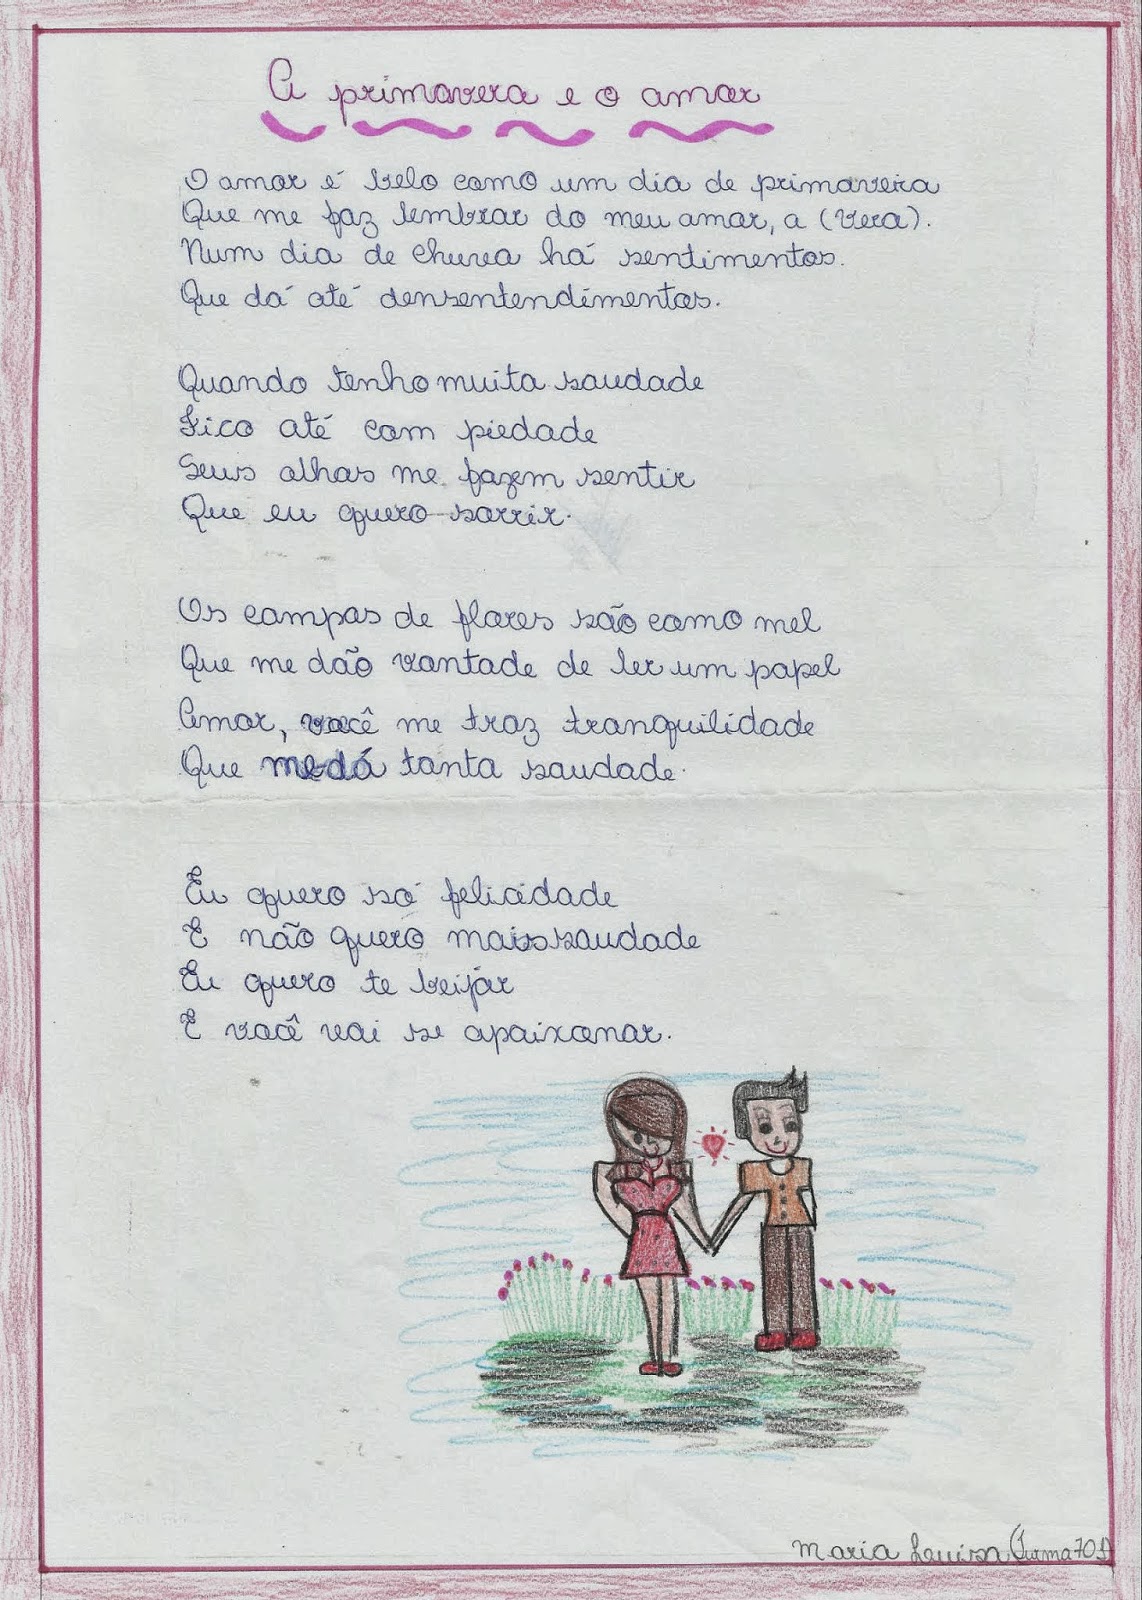 A primavera e o amor
O amor é belo como um dia de primavera
Que me faz lembrar do meu amor, a (Vera).
Num dia de chuva há sentimentos.
Que dá até densentendimentos.
Quando tenho muita saudade
Fico até com piedade
Seus olhos me fazem sentir
Que eu quero sorrir.
Os campos de flores são como mel
Que me dão vontade de ler um papel
Amor, você me traz tranquilidade
Que me dá tanta saudade.
Eu quero só felicidade
E não quero mais saudade
Eu quero te beijar
E você vai se apaixonar.
Maria Luiza Turma 701